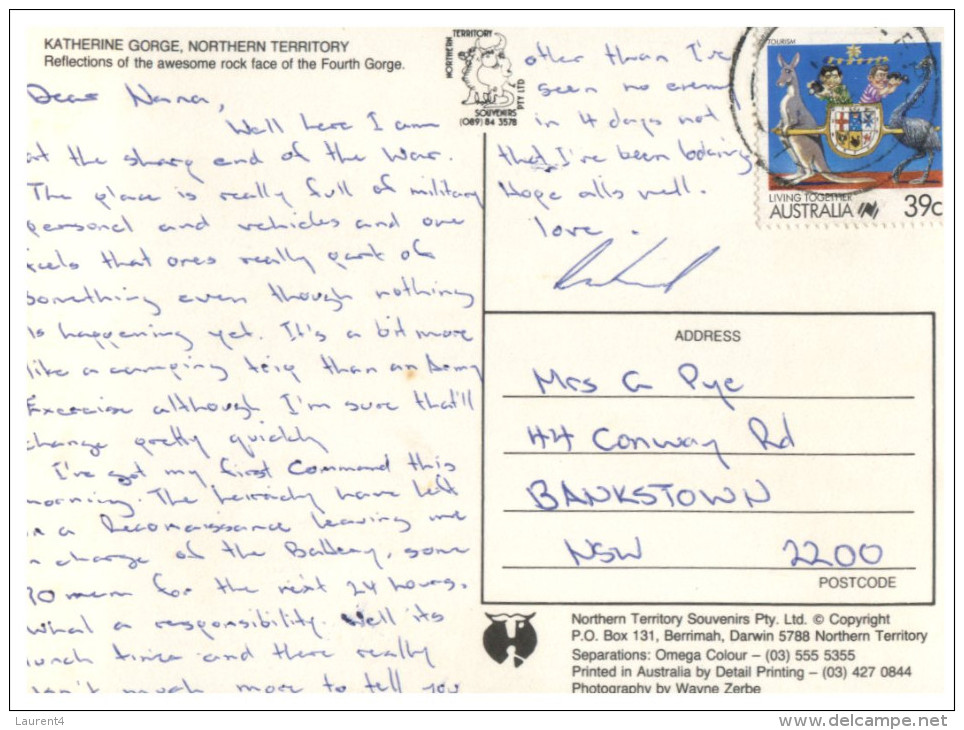 KATHERINE GORGE, NORTHERN TERRITORY
Reflections of the awesome rock face of the Fourth Gorge.
Dear Nana,
Well here I am
at the sharp end of the war.
The place is really full of military
personal and vehicles and one
feels that ones really part of
something even though nothing
is happening yet. It's a bit more
like a camping trip than an Army
Exercise although I'm sure that'll
change pretty quickly
I've got my first Command this
morning. The have left
on a Reconaissance leaving me
in charge of the Battery, some
men for the next 24 hours.
What a responsibility. Well its
lunch time and there really
isn't much more to tell you
NORTHERN TERRITORY
SOUVENIRS PTY LTD
(089) 84 3578
other than I've
seen no enemy
in 4 days not
that I've been looking
Hope alls well.
love.
TOURISM
LIVING TOGETHER
AUSTRALIA 39c
ADDRESS
Mrs G Pye
44 Conway Rd
BANKSTOWN
NSW 2200
POSTCODE
Northern Territory Souvenirs Pty. Ltd. © Copyright
P.O. Box 131, Berrimah, Darwin 5788 Northern Territory
Separations: Omega Colour – (03) 555 5355
Printed in Australia by Detail Printing – (03) 427 0844
Photography by Wayne Zerbe
Laurent4
www.delcampe.net